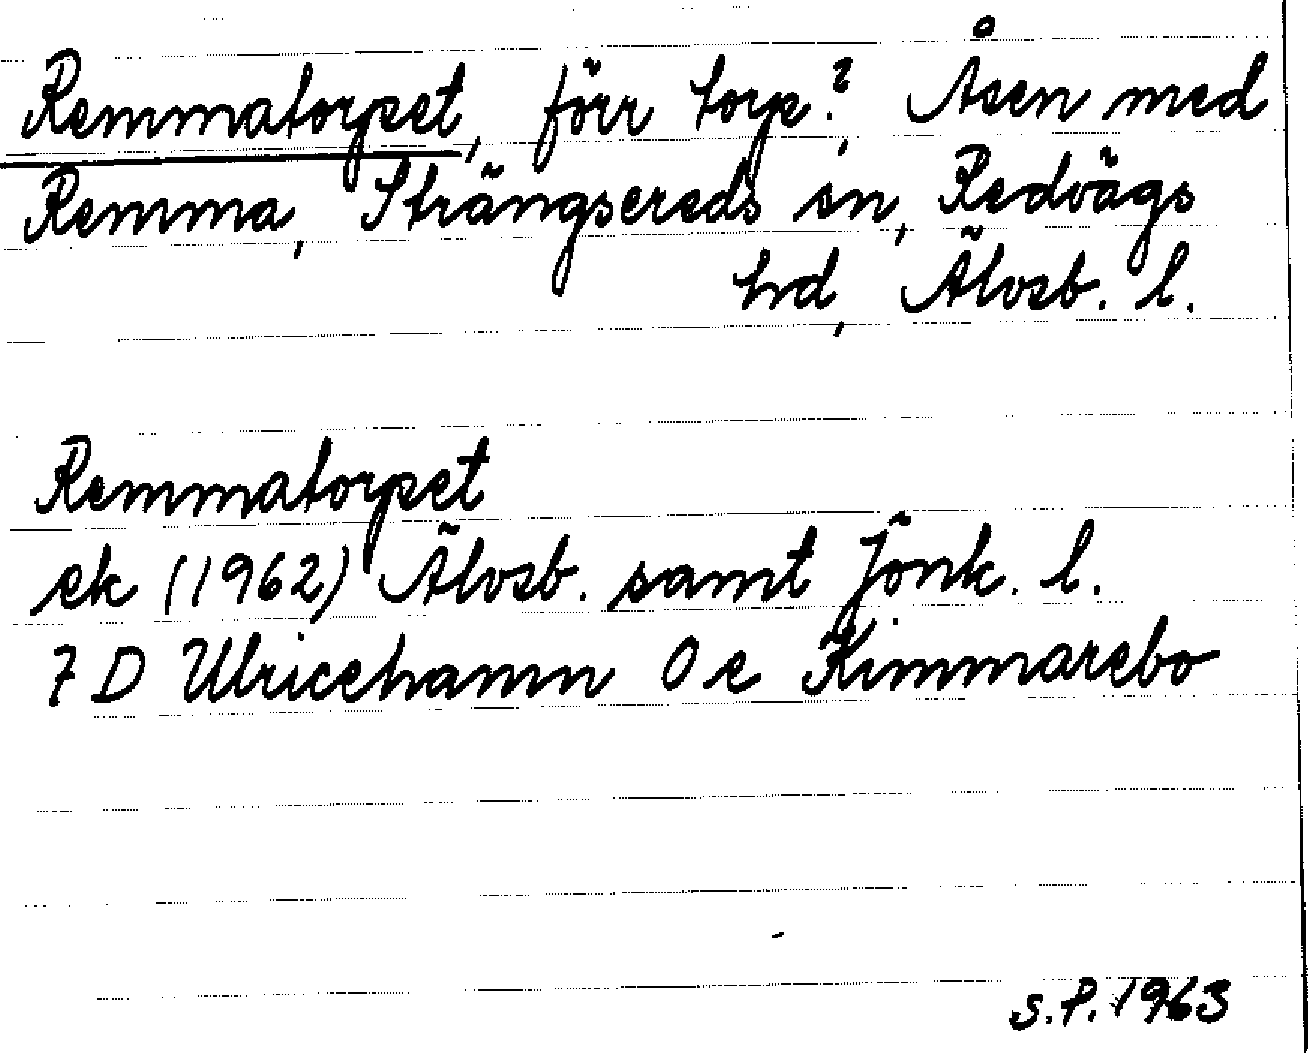 Remmatorpet, förr torp?, Åsen med
Remma, Strängsereds sn, Redvägs
hd, Älvsb. l.
Remmatorpet
ek (1962) Älvsb. samt Jönk. l.
7 D Ulricehamn 0 e Kimmarebo
S.P. 1963